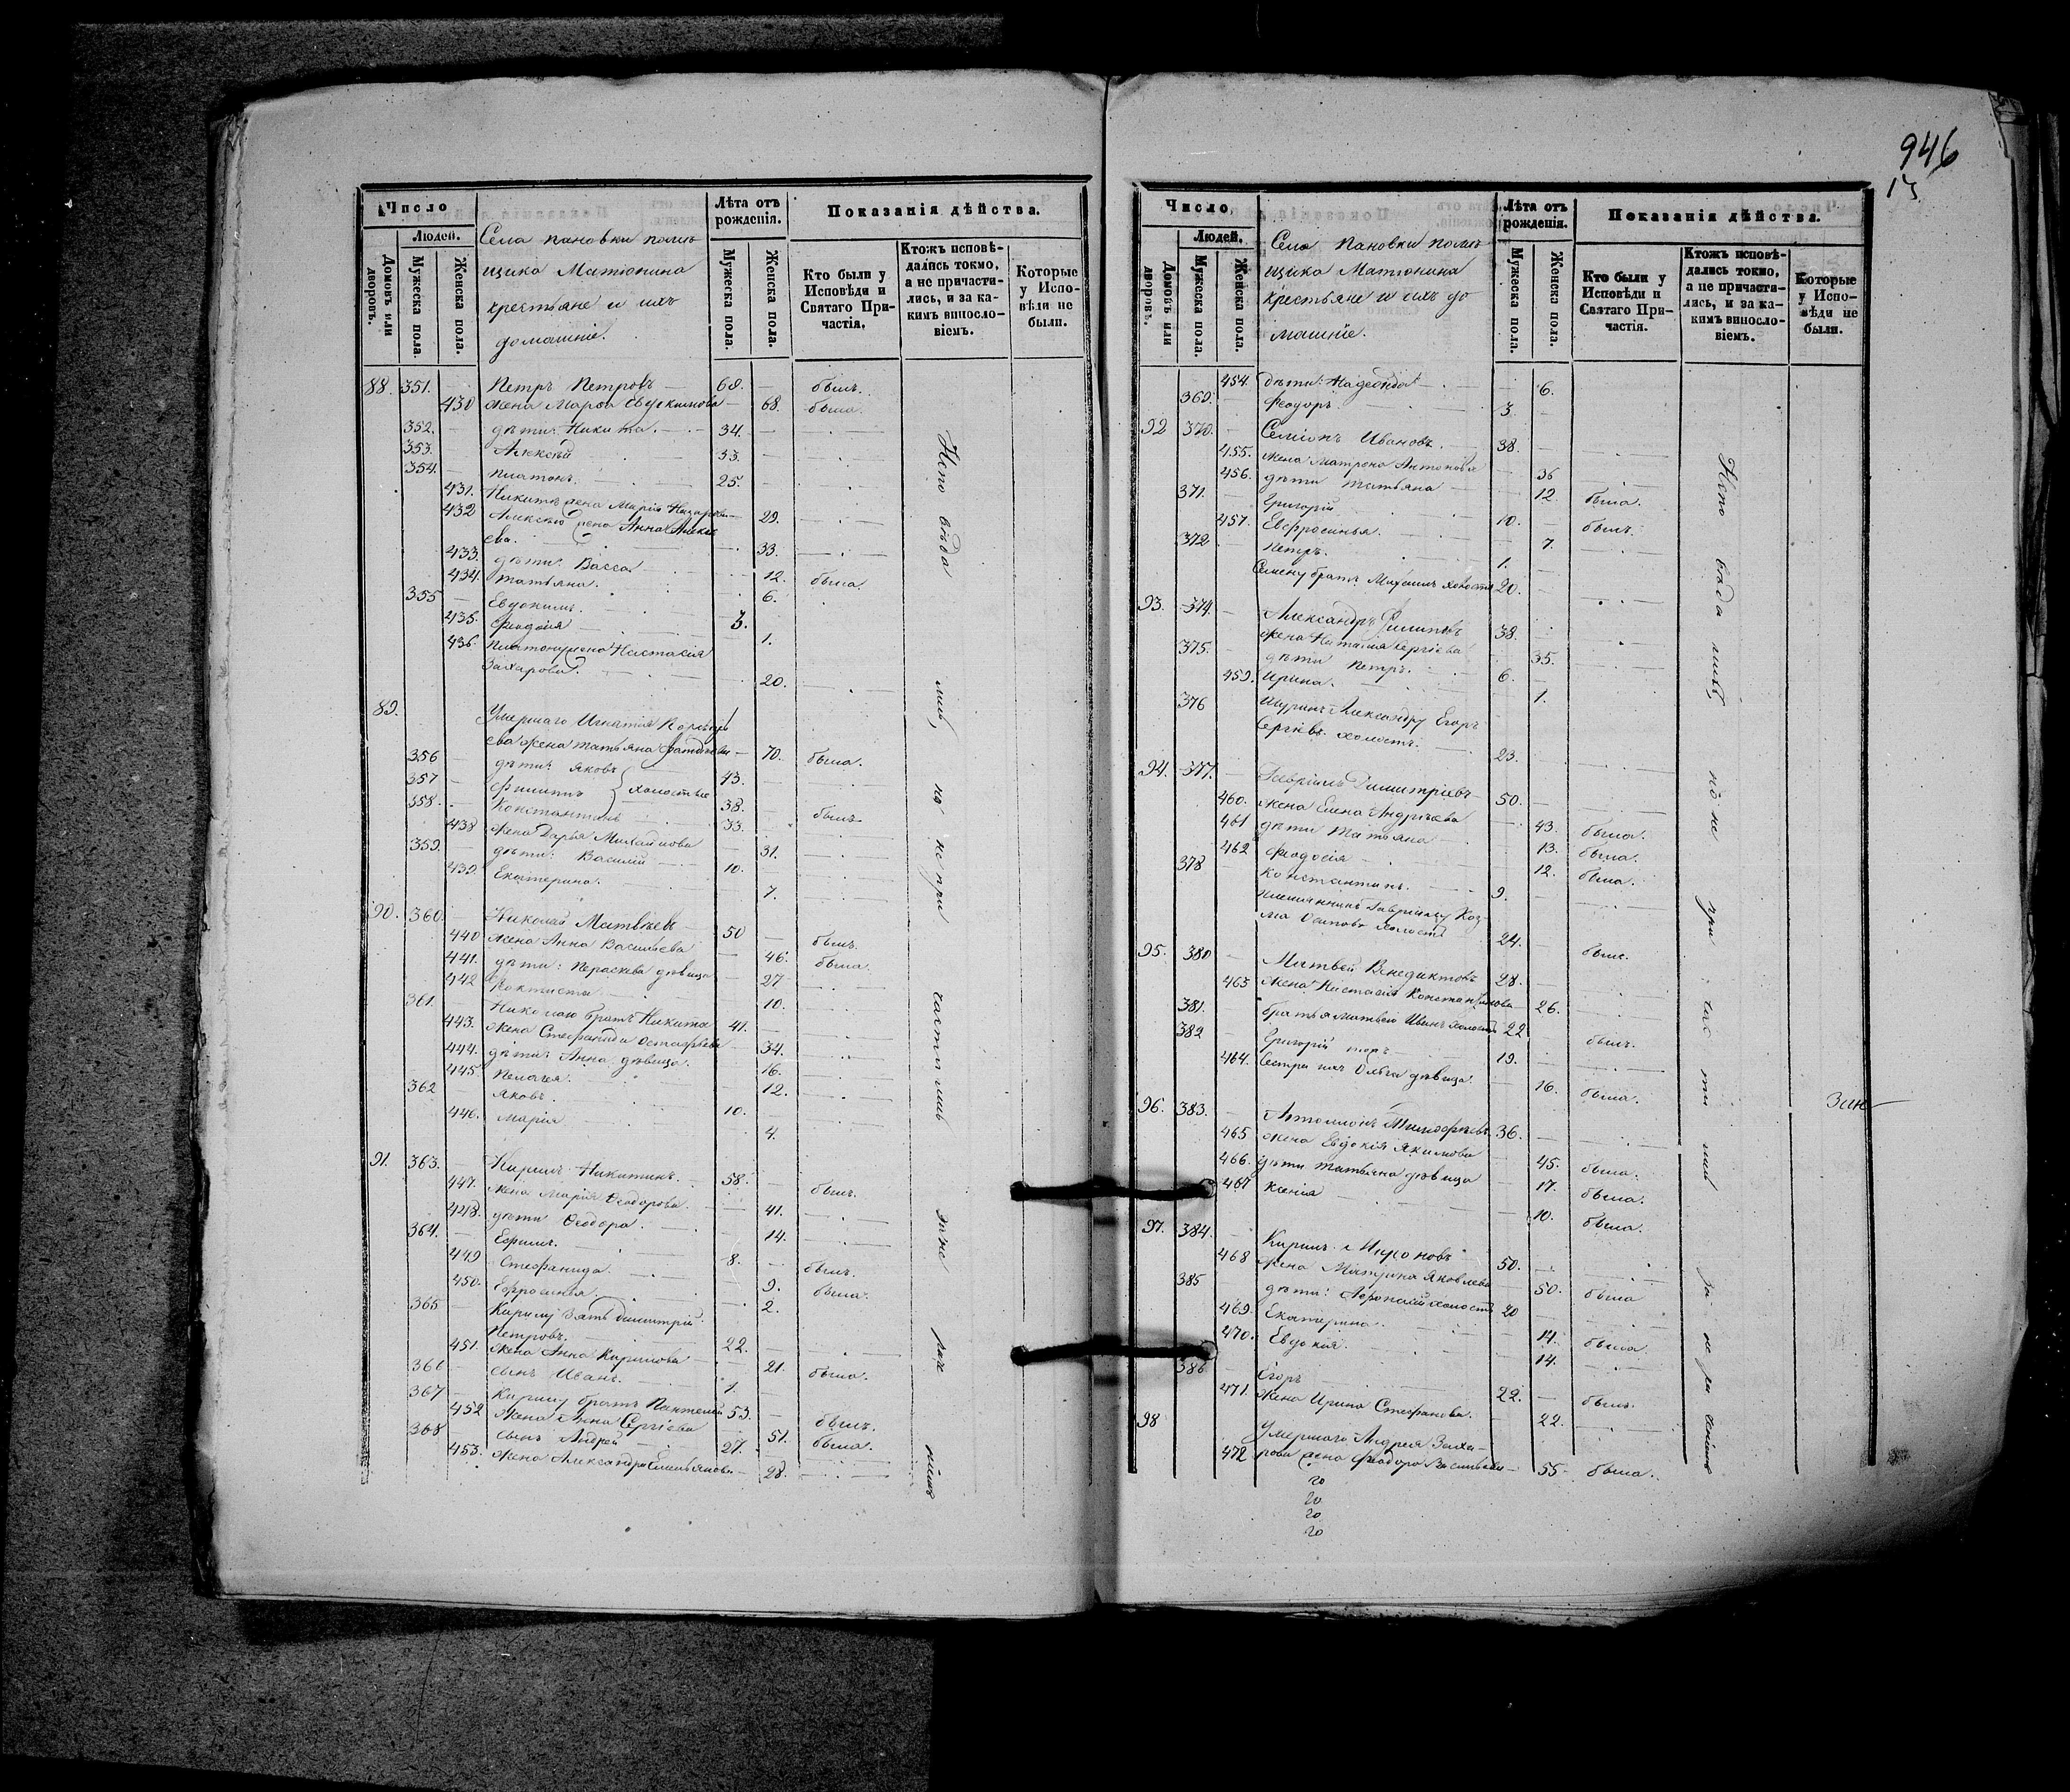 946
13
Число
Людей.
Домовъ или дворовъ.
Мужеска пола.
Женска пола.
Села Пановки помѣ
щика Матюнина
крестьяне и ихъ
домашніе.
Лѣта отъ рожденія.
Мужеска пола.
Женска пола.
Показанія дѣйства.
Кто были у Исповѣди и Святаго Причастія.
Ктожъ исповѣдались токмо, а не причастились, и за какимъ винословіемъ.
Которые у Исповѣди не были.
88. 351. — Петръ Петровъ — 69. — былъ.
430 жена Марѳа Евдокимова — 68. была.
352. — дѣти: Никита. — 34. —
353. Алексѣй 33. —
354. — Платонъ. 25. —
431. Никиты жена Марія Назарова — 29.
432 Алексѣя жена Анна Алексѣ
ева. 33.
433. дѣти: Васса 12. была
434. Татьяна. 6.
355 — Евдокимъ. 3.
435. Ѳеодосія 1.
436. Платону жена Настасія
Захарова. 20.
89. Умершаго Игнатія
ева жена Татьяна — 70. была.
356 — дѣти: Яковъ 43.
357 — Филиппъ холостые 38.
358. Константинъ 33. былъ
438 жена Дарья Михайлова 31.
359. дѣти: Василій — 10. —
439. Екатерина. 7.
90. 360. Николай Матвѣевъ — 50 — былъ.
440 жена Анна Васильева — 46. была.
441. дѣти: Параскева дѣвица — 27
442 Ѳеоктиста 10.
361. — Николаю братъ Никита 41. —
443. жена Стефанида Остафьева 34.
444. дѣти: Анна дѣвица. 16.
445 Пелагея. 12.
362 Яковъ. 10.
446. Марія 4.
91. 363. — Кирилъ Никитинъ. 58. — былъ.
447. жена Марія Ѳеодорова. 41.
448. дѣти Ѳеодора. 14.
364. — Ефимъ. 8. былъ.
449 Стефанида. 9. была.
450. Ефросинья. 2.
365 — Кирилу зять Димитрій
Петровъ. 22.
451. жена Анна Кирилова — 21. была.
366 сынъ Иванъ. 1.
367 — Кирилу братъ Пантелей 53. — былъ.
452 жена Анна Сергіева 51. была.
368 сынъ Андрей 27.
453. жена Александра Емельянова — 28.
Число.
Людей.
Домовъ или дворовъ.
Мужеска пола.
Женска пола.
Села Пановки помѣ
щика Матюнина
крестьяне и ихъ до
машніе.
Лѣта отъ рожденія.
Мужеска пола.
Женска пола.
Показанія дѣйства.
Кто были у Исповѣди и Святаго Причастія.
Ктожъ исповѣдались токмо, а не причастились, и за какимъ винословіемъ.
Которые у Исповѣди не были.
454. дѣти: Надежда 6.
369. Ѳеодоръ. 3.
92 370. — Семіонъ Ивановъ. 38.
455. жена Матрона Антонова 36
456. дѣти Татьяна — 12. была.
371. Григорій 10. былъ.
457. Евфросинья. 7.
372 Петръ. 1.
Семену братъ холостъ 20.
93. 374. Александръ Филиповъ 38.
жена Наталія Сергіева 35.
375. — дѣти Петръ. 6. —
459. Ирина. 1.
376 Шуринъ Александру Егоръ
Сергіевъ холостъ. 23.
94. 377. — Гавріилъ Димитріевъ — 50. —
460. жена Елена Андреева — 43. была.
461 дѣти Татьяна — 13. была.
462 Ѳеодосія — 12. была.
378 Константинъ. 9.
племянникъ Гавріилу Коз
ма Осиповъ холостъ 24. былъ.
95. 380 — Матвей Венедиктовъ 28.
463 жена Настасія Константинова 26.
381. братья Матвею Иванъ холостъ 22 былъ.
382 Григорій 19.
464. сестра ихъ Ольга дѣвица 16. была.
96. 383. Тимофеевъ 36.
465 жена Евдокія Якимова 45. была.
466. дѣти Татьяна дѣвица 17. была.
467 Ксенія 10. была.
97. 384. — Кирилъ 50.
468 жена Матрона Яковлева 50. была
385 дѣти: холостъ 20
469. Екатерина. 14. была.
470. Евдокія. 14.
386 Егоръ 22. — былъ.
471. жена Ирина Стефанова. 22.
98 Умершаго Андрея Заха—
472 рова жена Ѳеодора Васильева — 55 — была.
20
20
20
20